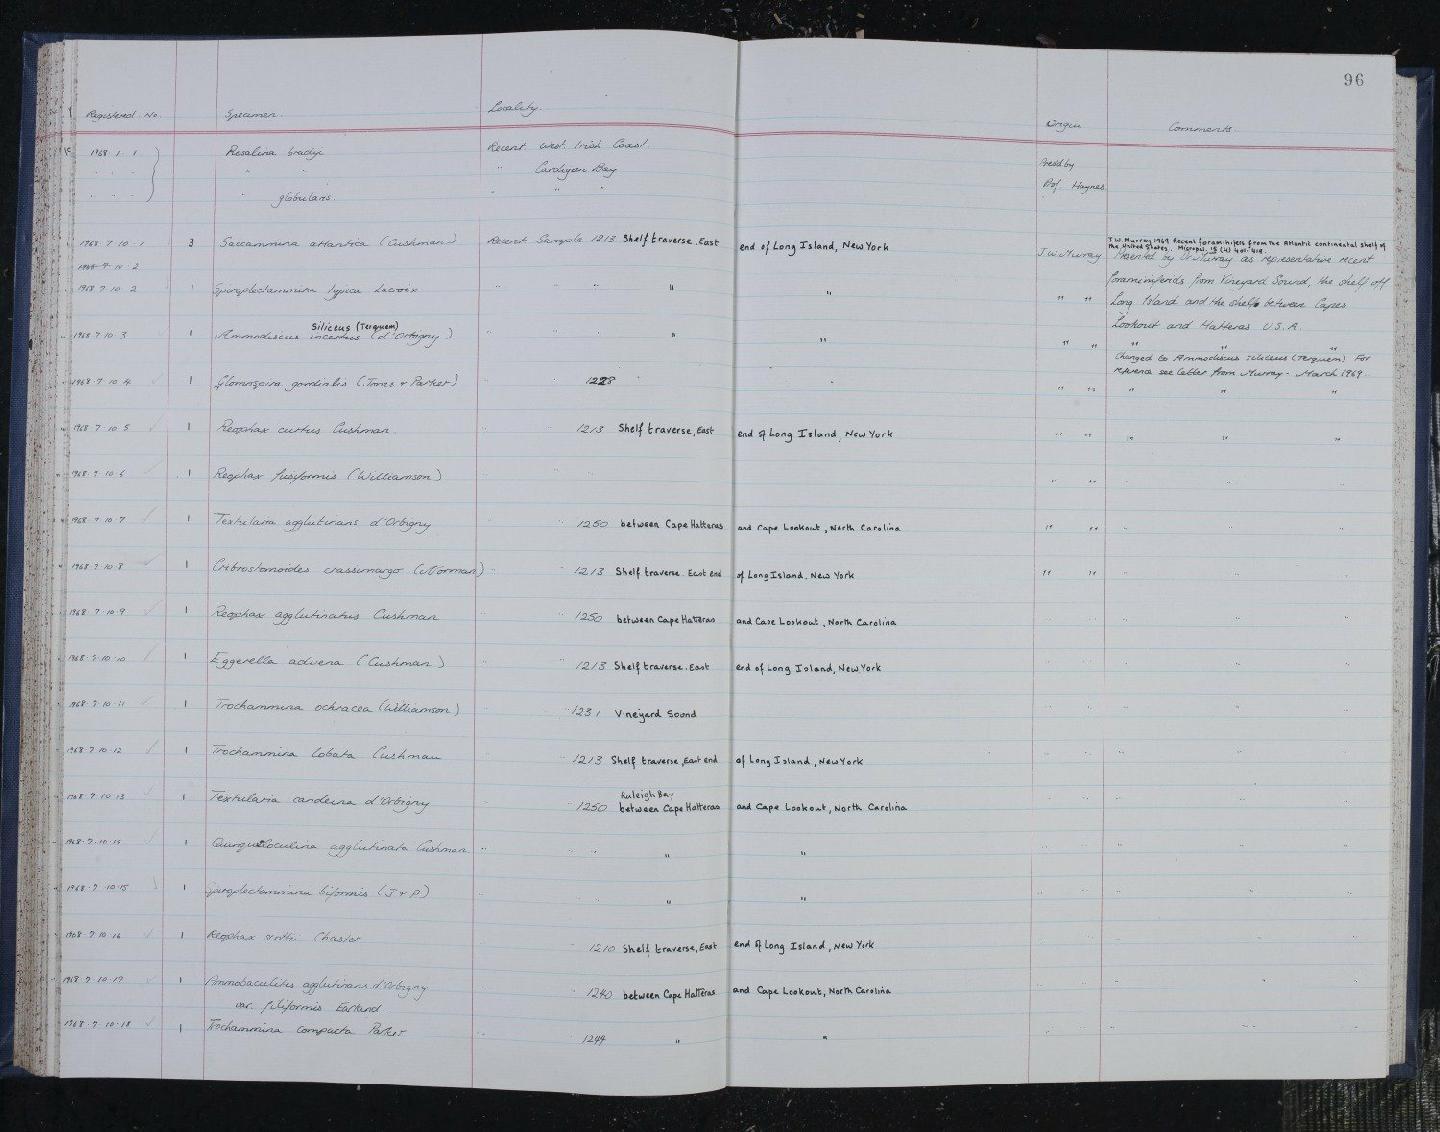 96
Registered No. Specimen. Locality. Origin Comments.
1968 1 1 Rosalina bradyi Recent West Irish Coast. Presd by
" " " " " Cardigan Bay Prof Haynes
" " " " globularis. " " "
1968 7 10 1 3 Saccammina atlantica (Cushman) Recent Sample 1213 Shelf traverse, East end of Long Island, New York J.W. Murray
J.W. Murray 1969 Recent foraminifers from the Atlantic continental shelf of
the United States. Micropal. 15 (4) 401-418.
Presented by Dr Murray as representative recent
foraminiferids from Vineyard Sound, the shelf off
Long Island and the shelf between Capes
Lookout and Hatteras U.S.A.
1968 7 10 2
1968 7 10 2 1 Spiroplectammina typica Lacroix " " " " " " "
Siliceus (Terquem)
1968 7 10 3 1 Ammodiscus incertus (d'Orbigny) " " " " " " " " " "
Changed to Ammodiscus siliceus (Terquem) For
reference see letter from Murray - March 1969.
1968 7 10 4 1 Glomospira gordialis (Jones & Parker) " 1228 " " " " " " "
1968 7 10 5 1 Reophax curtus Cushman " " 1213 Shelf traverse, East end of Long Island, New York " " " " "
1968 7 10 6 1 Reophax fusiformis (Williamson) " " " " " " " "
1968 7 10 7 1 Textularia agglutinans d'Orbigny " " 1250 between Cape Hatteras and Cape Lookout, North Carolina " " " "
1968 7 10 8 1 Cribrostomoides crassimargo (Norman) " " 1213 Shelf traverse East end of Long Island, New York " " " " "
1968 7 10 9 1 Reophax agglutinatus Cushman " " 1250 between Cape Hatteras and Cape Lookout, North Carolina " " " " "
1968 7 10 10 1 Eggerella advena (Cushman) " " 1213 Shelf traverse, East end of Long Island, New York " " " " "
1968 7 10 11 1 Trochammina ochracea (Williamson) " " 1231 Vineyard Sound " " " " "
1968 7 10 12 1 Trochammina lobata Cushman " " 1213 Shelf traverse, East end of Long Island, New York " " " " "
Raleigh Bay
1968 7 10 13 1 Textularia candeina d'Orbigny " " 1250 between Cape Hatteras and Cape Lookout, North Carolina " " " " "
1968 7 10 14 1 Quinqueloculina agglutinata Cushman " " " " " " " " " "
1968 7 10 15 1 Spiroplectammina biformis (J & P) " " " " " " " " " "
1968 7 10 16 1 Reophax Chaster " 1210 Shelf traverse, East end of Long Island, New York " " " " "
1968 7 10 17 1 Ammobaculites agglutinans d'Orbigny " 1240 between Cape Hatteras and Cape Lookout, North Carolina " " " " "
var. filiformis Earland
1968 7 10 18 1 Trochammina compacta Parker " 1244 " " " " " " "